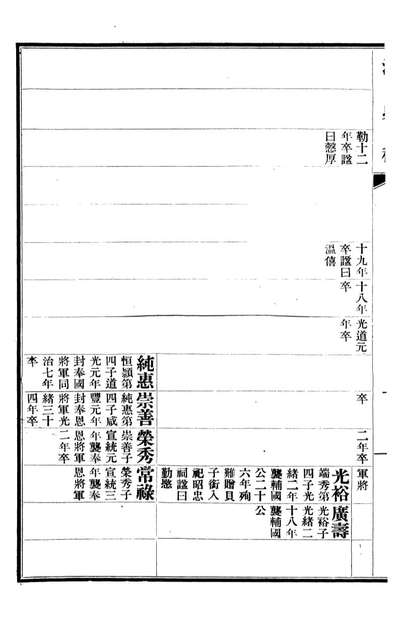 勒十二
年卒諡
曰愨厚
十九年
卒諡曰
溫僖
十八年
卒
光道元
年卒
卒
二年卒
軍將
光裕
端秀第
四子光
緒二年
襲輔國
公二十
六年殉
難贈貝
子銜入
祀昭忠
祠諡曰
勤愍
廣壽
光裕子
光緒二
十八年
襲輔國
公
純惠
恒顯第
四子道
光元年
封奉國
將軍同
治七年
卒
崇善
純惠第
四子咸
豐元年
封奉恩
將軍光
緒三十
四年卒
榮秀
崇善子
宣統元
年襲奉
恩將軍
二年卒
常祿
榮秀子
宣統三
年襲奉
恩將軍